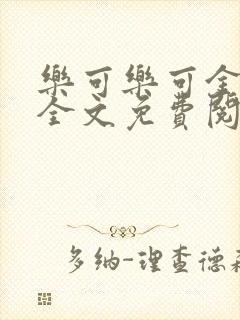 樂可樂可全
全文免費閱
多納-理查德森